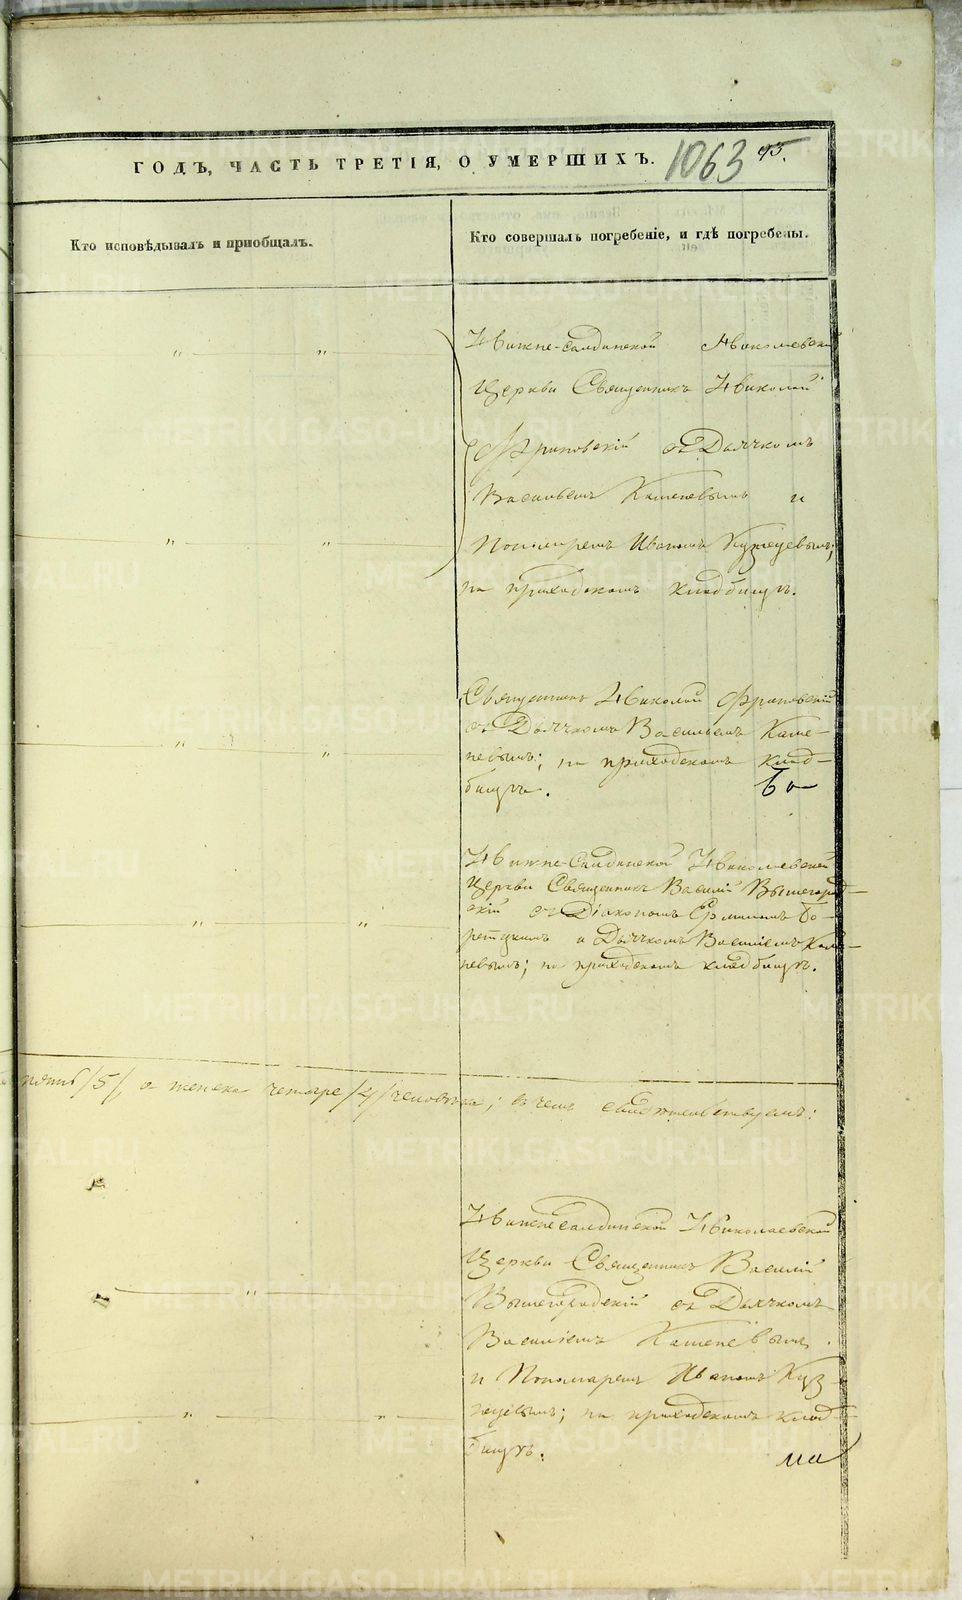 ГОДЪ, ЧАСТЬ ТРЕТІЯ, О УМЕРШИХЪ. 1063 93.
Кто исповѣдывалъ и приобщалъ.
Кто совершалъ погребеніе, и гдѣ погребены.
Нижне-Салдинской Николаевской
Церкви Священникъ Николай
Фриновскій съ Дьячкомъ
Васильемъ Каменевымъ и
Пономаремъ Иваномъ Кузнецовымъ;
на приходскомъ кладбищѣ.
Священникъ Николай Фриновскій
съ Дьячкомъ Васильемъ Каме-
невымъ; на приходскомъ клад-
бищѣ.
Нижне-Салдинской Николаевской
Церкви Священникъ Василій Вышегород-
скій съ Діакономъ
и Дьячкомъ Василіемъ Каме-
невымъ; на приходскомъ кладбищѣ.
пять /5/, а женска четыре /4/ человѣка; въ чемъ свидѣтельствуемъ:
Нижнесалдинской Николаевской
Церкви Священникъ Василій
Вышегородскій съ Дьячкомъ
Василіемъ Каменевымъ
и Пономаремъ Иваномъ Куз-
нецовымъ; на приходскомъ клад-
бищѣ.
METRIKI.GASO-URAL.RU